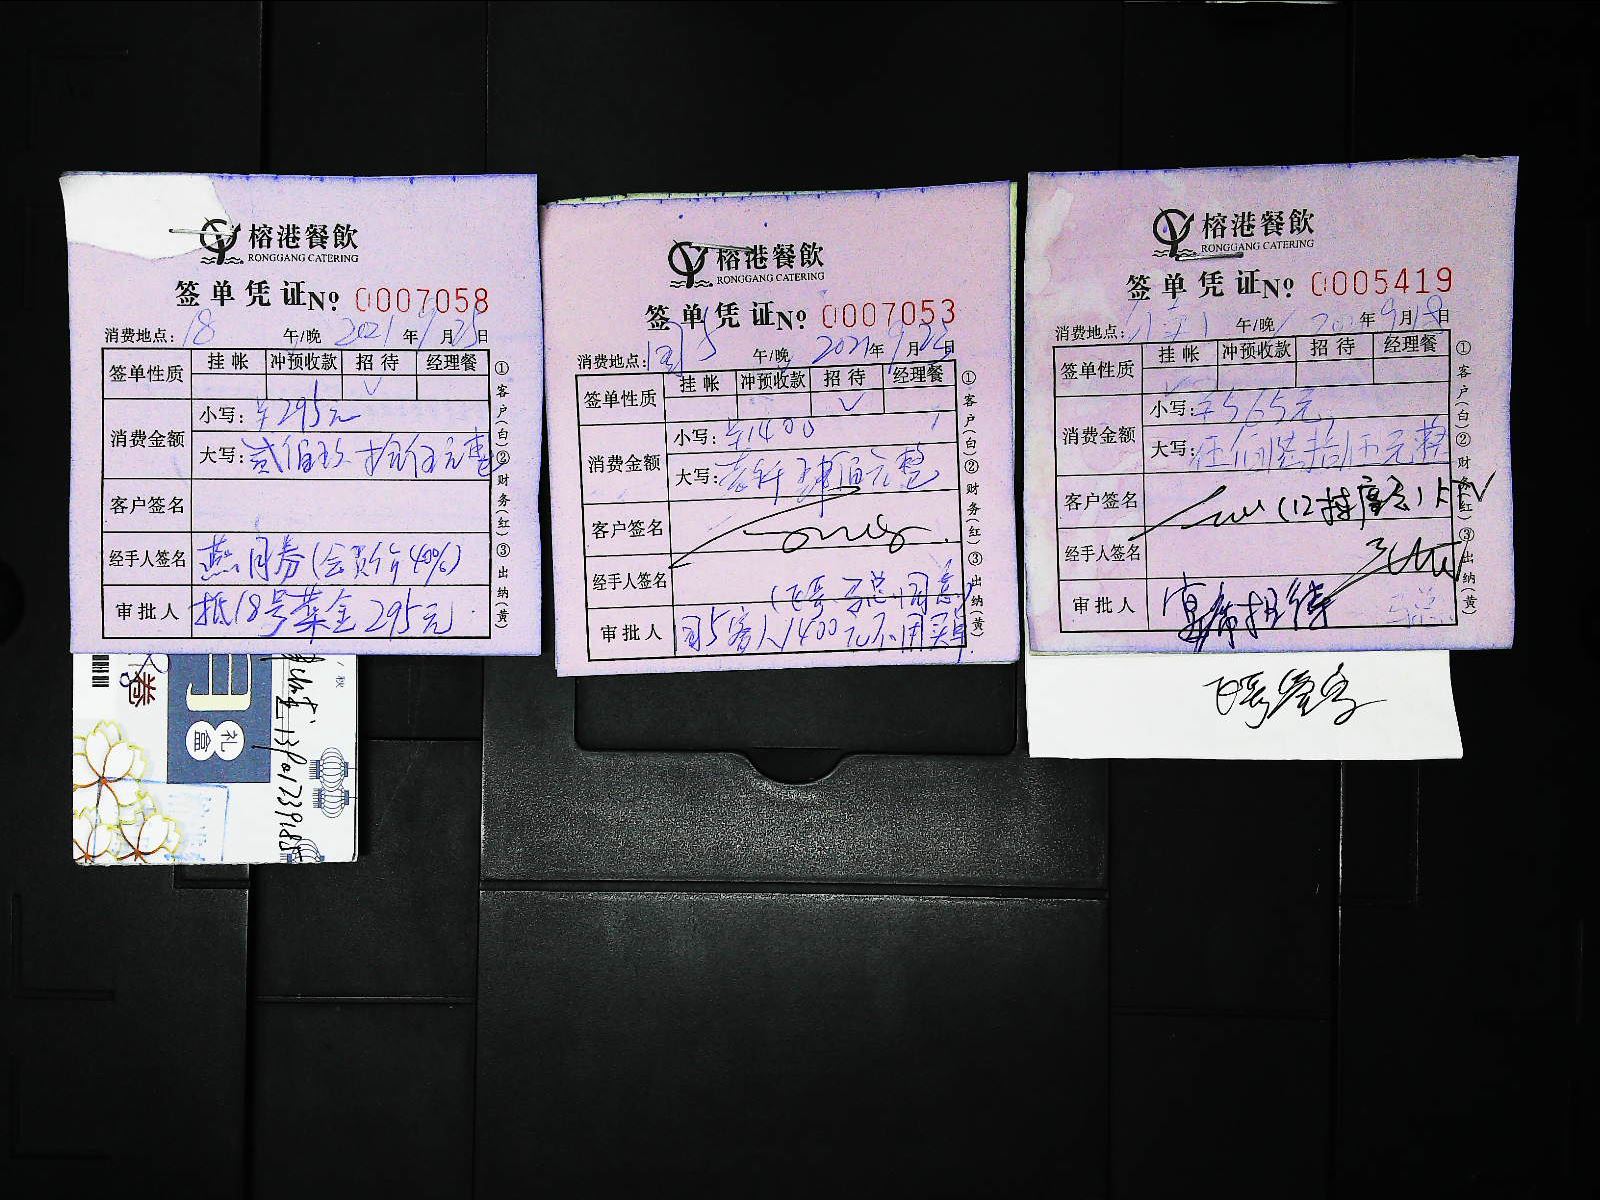 榕港餐飲
RONGGANG CATERING
签单凭证№ 0007058
消费地点：18 午/晚 2021年9月23日
签单性质 挂帐 冲预收款 招待 经理餐
√
消费金额 小写：￥295元
大写：贰佰玖拾伍元整
客户签名
经手人签名 燕月券(会员价40%)
审批人 抵18号菜金295元
①客户(白)②财务(红)③出纳(黄)
礼盒
券
秋
榕港餐飲
RONGGANG CATERING
签单凭证№ 0007053
消费地点： 5 午/晚 2021年9月22日
签单性质 挂帐 冲预收款 招待 经理餐
√
消费金额 小写：￥1400
大写：壹仟肆佰元整
客户签名
经手人签名
同意
审批人 5客人1400元不用买单
①客户(白)②财务(红)③出纳(黄)
榕港餐飲
RONGGANG CATERING
签单凭证№ 0005419
消费地点： 午/晚 年9月18日
签单性质 挂帐 冲预收款 招待 经理餐
消费金额 小写：￥565元
大写：伍佰陆拾伍元整
客户签名
经手人签名
审批人 招待
①客户(白)②财务(红)③出纳(黄)
签字